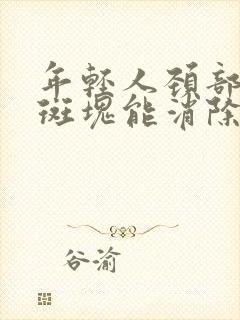 年轻人颈部
斑块能消除
谷渝